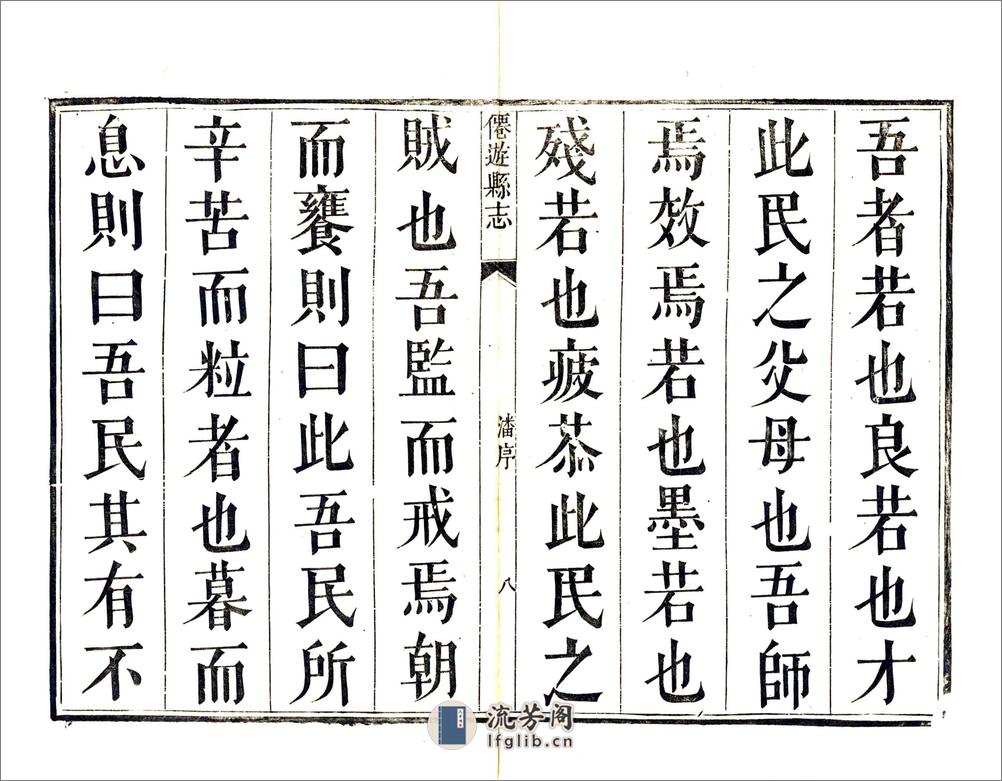 吾者若也良若也才
此民之父母也吾師
焉效焉若也墨若也
殘若也疲苶此民之
僊遊縣志
潘序
八
賊也吾監而戒焉朝
而饔則曰此吾民所
辛苦而粒者也暮而
息則曰吾民其有不
流芳阁
lfglib.cn